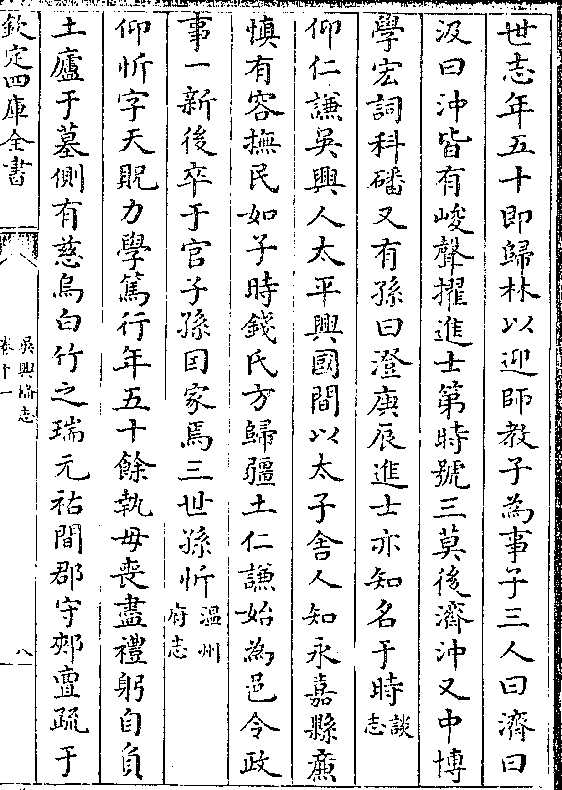 世志年五十即歸林以迎師教子為事子三人曰濟曰
汲曰沖皆有峻聲擢進士第時號三莫後濟沖又中博
學宏詞科磻又有孫曰澄庚辰進士亦知名于時談志
仰仁謙吳興人太平興國間以太子舍人知永嘉縣廉
慎有容撫民如子時錢氏方歸疆土仁謙始為邑令政
事一新後卒于官子孫因家焉三世孫忻溫州府志
仰忻字天貺力學篤行年五十餘執母喪盡禮躬自負
土廬于墓側有慈烏白竹之瑞元祐間郡守郟亶疏于
欽定四庫全書
吳興備志
卷十一
八